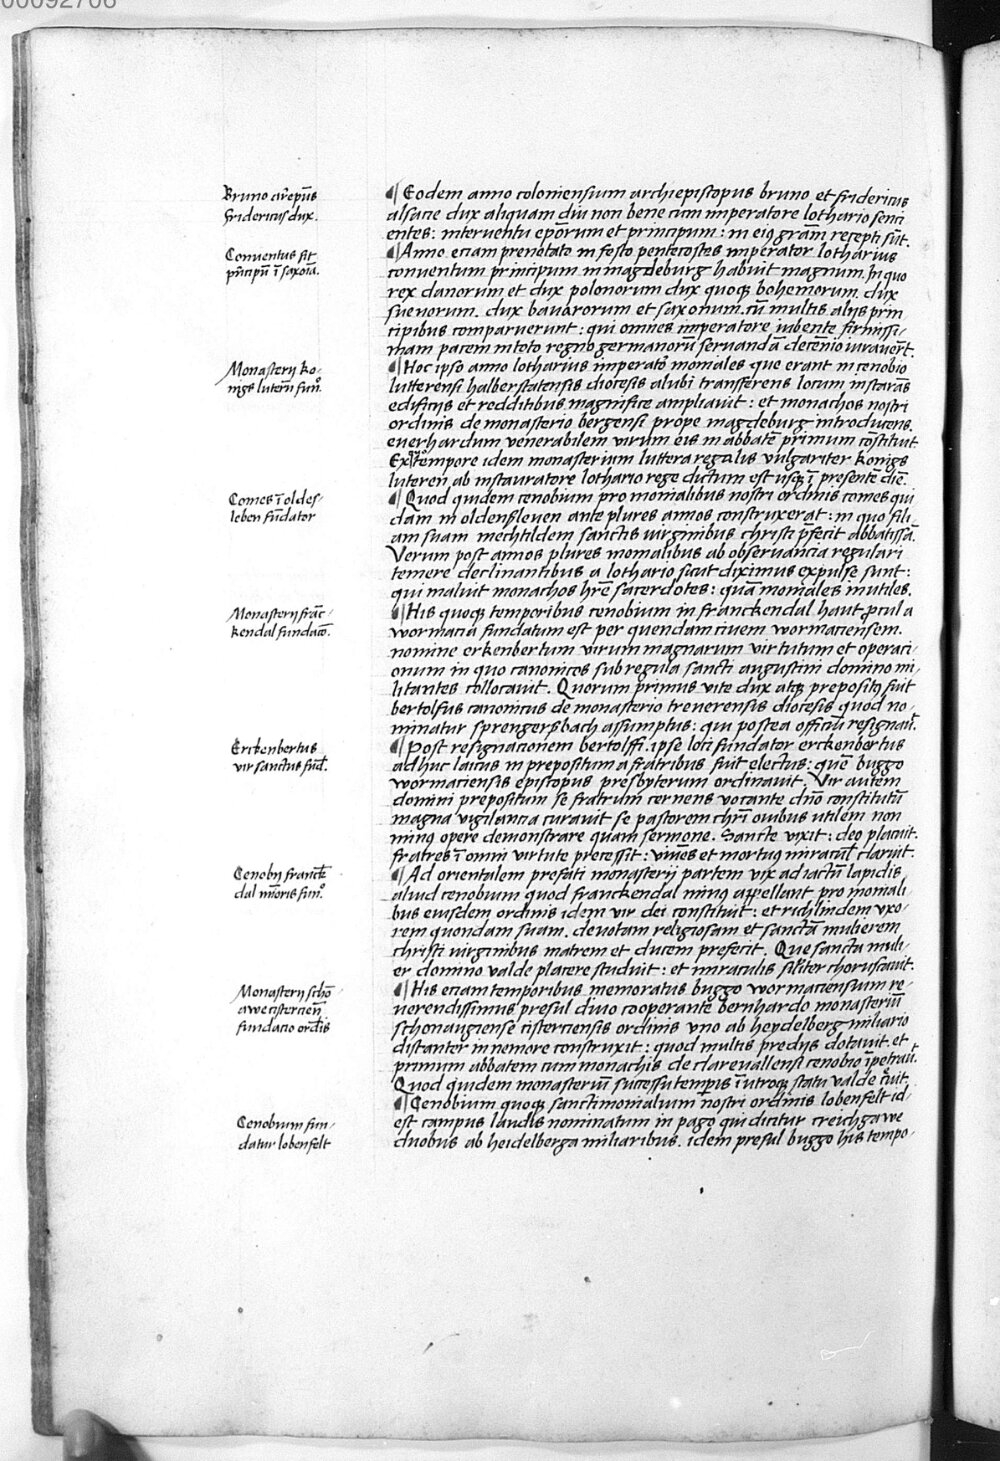 00092706
Bruno arēpūs
fridericus dux.
¶ Eodem anno coloniensium archiepiscopus bruno et fridericus
alsacie dux aliquam diu non bene cum imperatore lothario senci
entes: interventu ep̄orum et principum: in eiꝯ grām recepti sūt.
Conventus fit
pn̄cipū ī saxoīa.
¶ Anno eciam prenotato in festo pentecostes imperator lotharius
conventum principum in magdeburg habuit magnum. In quo
rex danorum et dux polonorum dux quoqꝫ bohemorum. dux
suevorum. dux bavarorum et saxonum. cū multis alijs prin
cipibus comparuerunt: qui omnes imperatore iubente firmissi-
mam pacem in toto regno germanorū servandā decēnio iuraverūt.
Monasterij ko-
nigs luterñ funº.
¶ Hoc ipso anno lotharius imperatoʳ moniales que erant in cenobio
lutterensi halberstatensis diocesis alubi transferens locum instarās
edificijs et redditibus magnifice ampliavit: et monachos nostri
ordinis de monasterio bergensi prope magdeburg introducens.
everhardum venerabilem virum eis in abbatē primum cōstituit.
Ex tempore idem monasterium luttera regalis vulgariter konigs
lutteren ab instauratore lothario rege dictum est usqꝫ ī presentē diē.
Comes ī oldes-
leben fūdator
¶ Quod quidem cenobium pro monialibus nostri ordinis comes qui
dam in oldenßleven ante plures annos construxerat: in quo fili
am suam mechtildem sanctis virginibus christi p̄fecit abbatissā.
Verum post annos plures monialibus ab observancia regulari
temere declinantibus a lothario sicut diximus expulse sunt:
qui maluit monachos hr̄e sacerdotes: quā moniales inutiles.
Monasterij frāc-
kendal fundacō.
¶ His quoqꝫ temporibus cenobium in franckendal haut ꝓcul a
wormacia fundatum est per quendam civem wormaciensem.
nomine erkenbertum virum magnarum virtutum et operaci-
onum in quo canonicos sub regula sancti augustini domino mi-
litantes collocavit. Quorum primus vite dux atqꝫ prepositꝯ fuit
bertolfus canonicus de monasterio treverensis diocesis quod no-
minatur sprengerßbach assumptus: qui postea officiū resignavͭ.
Erckenbertus
vir sanctus fūd.
¶ Post resignacionem bertolffi. ipse loci fundator erckenbertus
adhuc laicus in prepositum a fratribus fuit electus: quē buggo
wormaciensis episcopus presbyterum ordinavit. Vir autem
domini prepositum se fratrum cernens vocante dn̄o constitutū
magna vigilancia curavit se pastorem chrī ovibus utilem non
minꝯ opere demonstrare quam sermone. Sancte vixit: deo placuit.
fratres ī omni virtute precessit: vivēs et mortuꝯ miracul̄ claruit.
Cenobij franck
dal mīoris funº.
¶ Ad orientalem prefati monasterij partem vix ad iactū lapidis
aliud cenobium quod franckendal minꝯ appellant pro moniali-
bus eiusdem ordinis idem vir dei constituit: et richlindem uxo-
rem quondam suam. devotam religiosam et sanctā mulierem
christi virginibus matrem et ducem prefecit. Que sancta muli-
er domino valde placere studuit: et miraculis sil̄iter choruscavit.
Monasterij schō-
awe cisterciēn̄
fundacio ord̄is
¶ His eciam temporibus memoratus buggo wormaciensium re-
verendissimus presul divo cooperante bernhardo monasteriū
schonaugiense cisterciensis ordinis uno ab heydelberg miliario
distanter in nemore construxit: quod multis predijs dotavit. et
primum abbatem cum monachis de clarevallensi cenobio īpetravͭ.
Quod quidem monasteriū successu temp̄is ī utroqꝫ statu valde c̄vit.
Cenobium fun-
datur lobenfelt
¶ Cenobium quoqꝫ sanctimonialium nostri ordinis lobenfelt id-
est campus laudis nominatum in pago qui dicitur creichgawe
duobus ab heidelberga miliaribus. idem presul buggo his tempo-